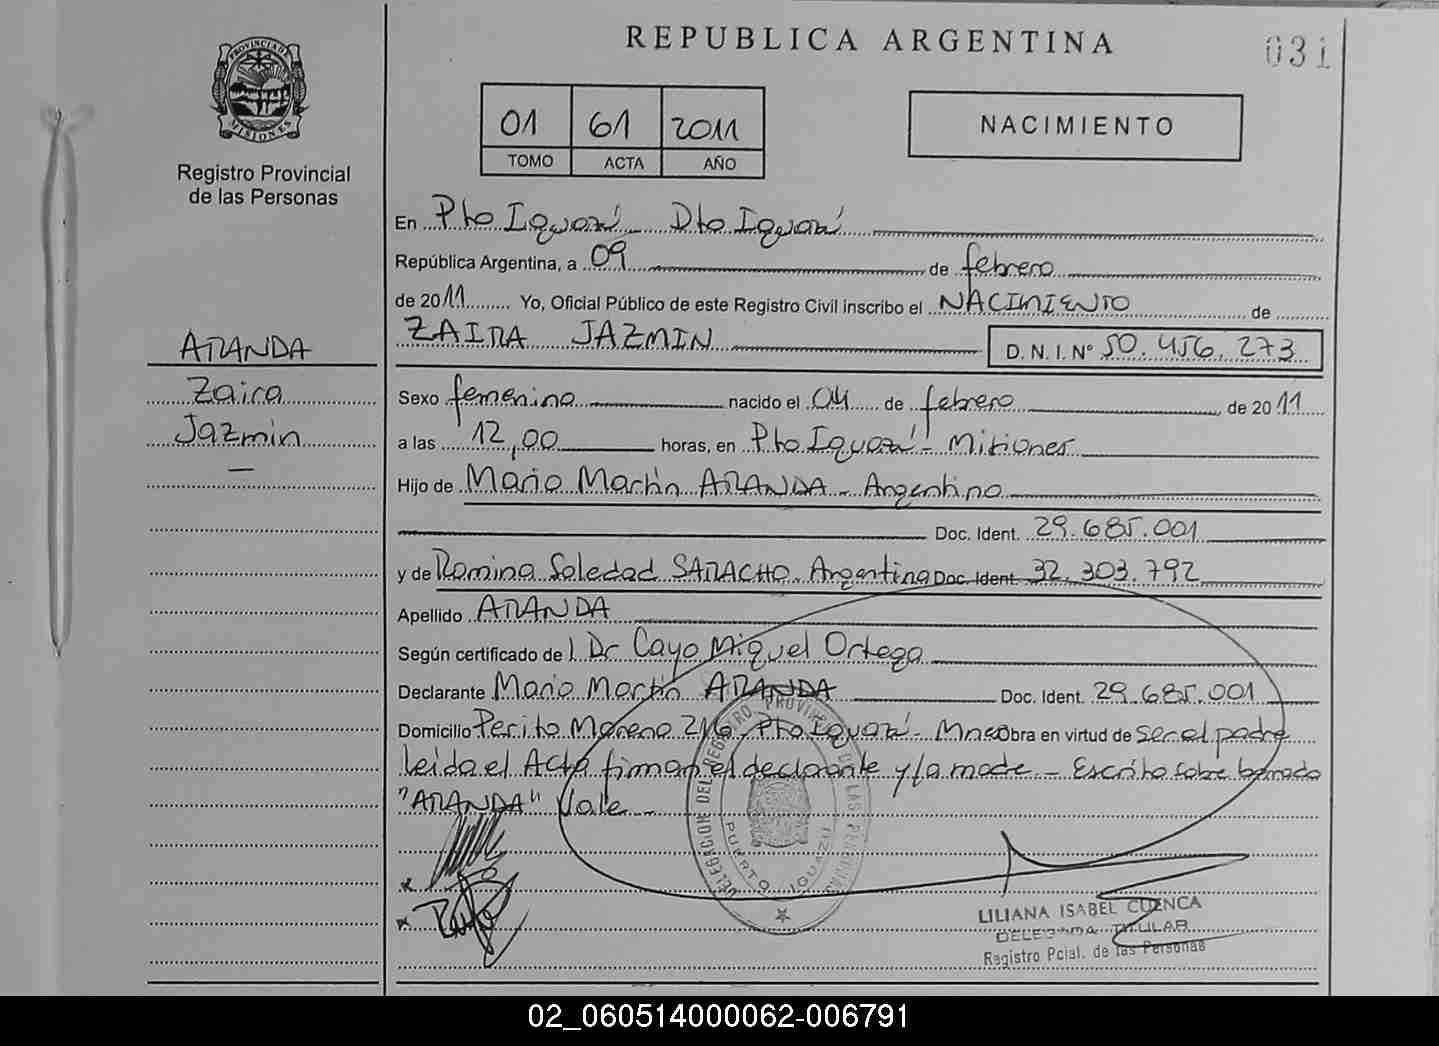 REPUBLICA ARGENTINA
031
PROVINCIA DE MISIONES
Registro Provincial
de las Personas
01 61 2011
TOMO ACTA AÑO
NACIMIENTO
En Pto Iguazú Dto Iguazú
República Argentina, a 09 de febrero
de 2011 Yo, Oficial Público de este Registro Civil inscribo el NACIMIENTO de
ZAIRA JAZMIN D. N. I. N° 50.456.273
ARANDA
Zaira
Jazmin
Sexo femenino nacido el 04 de febrero de 2011
a las 12,00 horas, en Pto Iguazú - Misiones
Hijo de Mario Martín ARANDA - Argentino
Doc. Ident. 29.685.001
y de Romina Soledad SARACHO - Argentina Doc. Ident. 32.303.792
Apellido ARANDA
Según certificado del Dr Cayo Miguel Ortega
Declarante Mario Martín ARANDA Doc. Ident. 29.685.001
Domicilio Perito Moreno 216, Pto Iguazú - Mnes Obra en virtud de ser el padre
leida el Acta firman el declarante y la made - Escrito sobre borrado
"ARANDA" Vale -
DELEGACION DEL REGISTRO PROVINCIAL DE LAS PERSONAS
PUERTO IGUAZU
LILIANA ISABEL CUENCA
DELEGADA TITULAR
Registro Pcial. de las Personas
02_060514000062-006791